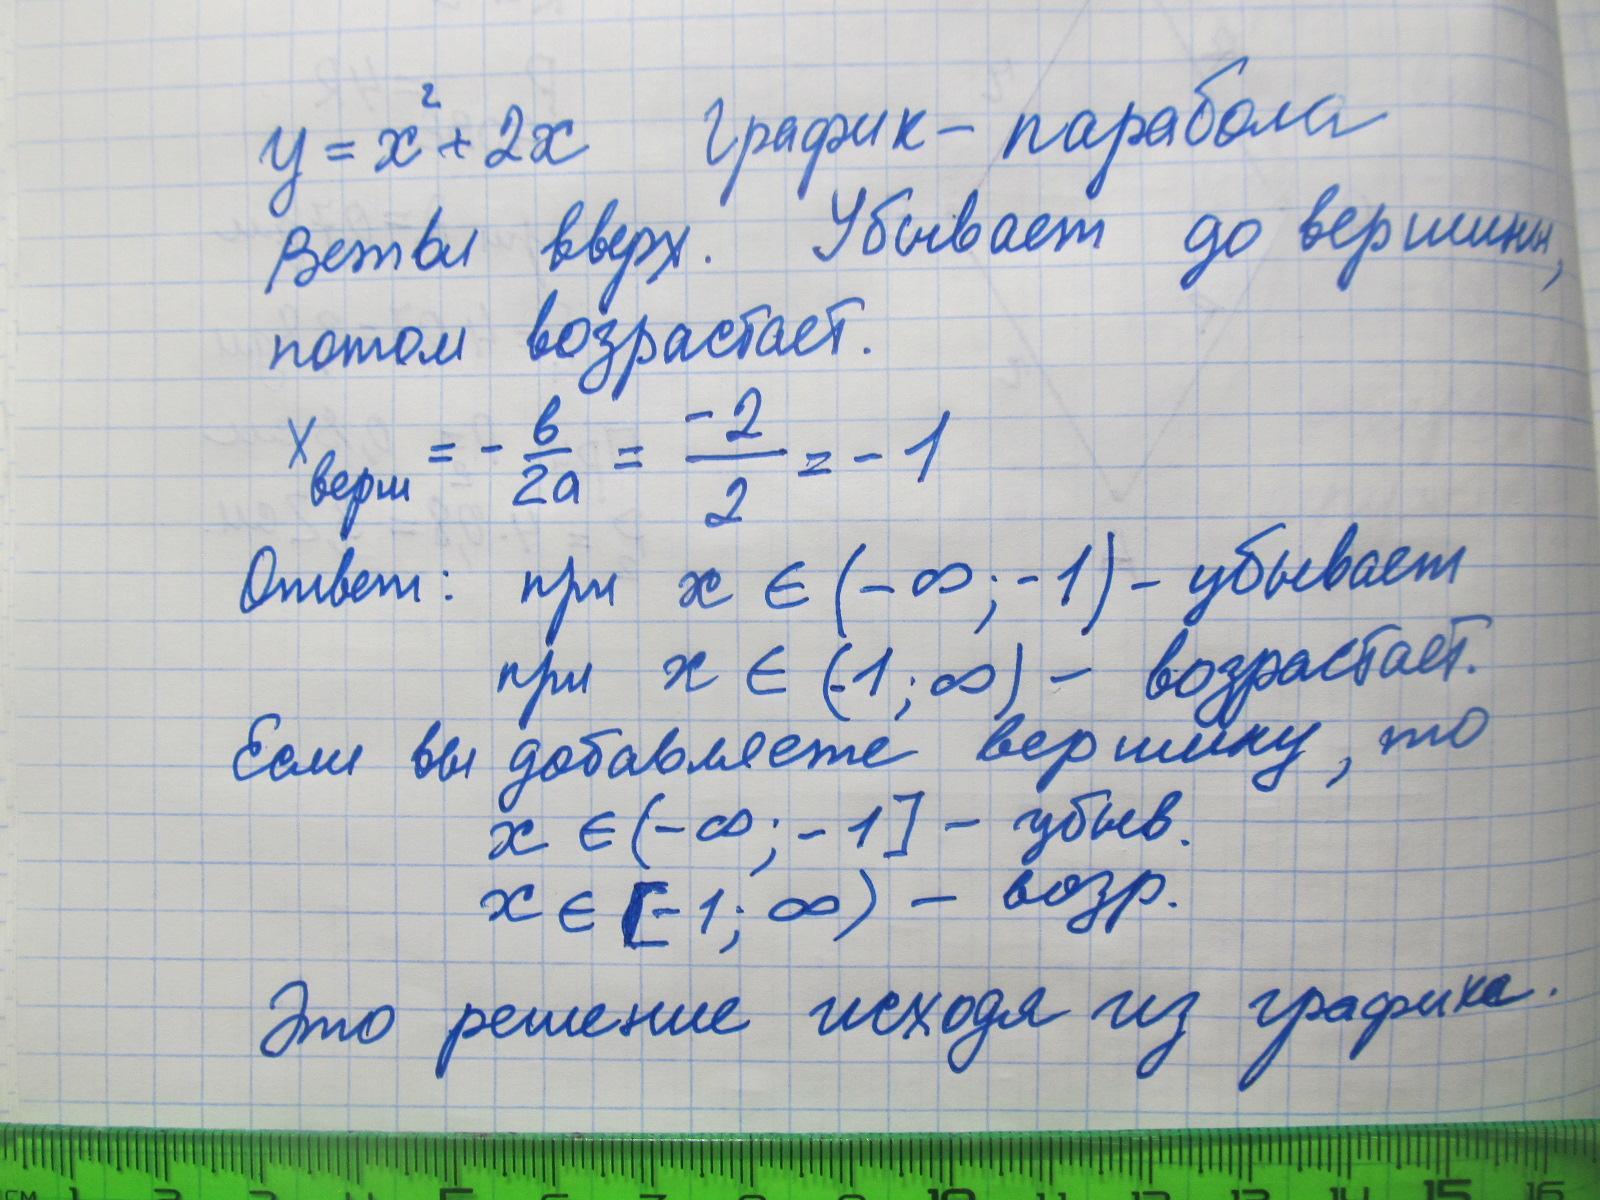 y = x² + 2x График – парабола
Ветви вверх. Убывает до вершины,
потом возрастает.
x верш = - в/2a = -2/2 = -1
Ответ: при x ∈ (-∞; -1) - убывает
при x ∈ (-1; ∞) - возрастает.
Если вы добавляете вершину, то
x ∈ (-∞; -1] - убыв.
x ∈ [-1; ∞) - возр.
Это решение исходя из графика.
см 1 2 3 4 5 6 7 8 9 10 11 12 13 14 15 16